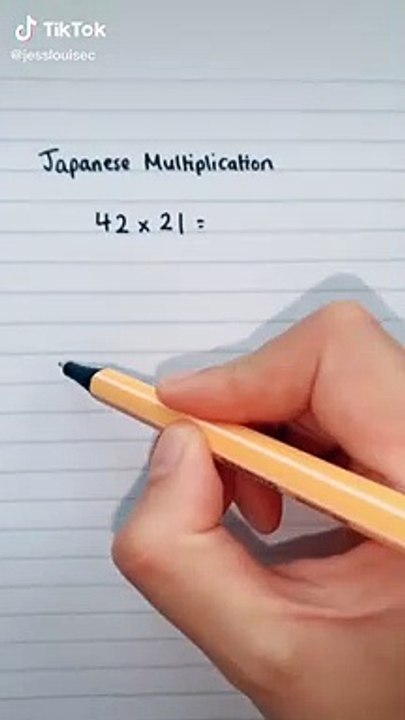 TikTok
@jesslouisec
Japanese Multiplication
42 x 21 =